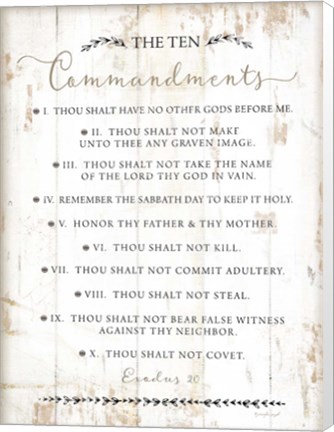 THE TEN
Commandments
I. THOU SHALT HAVE NO OTHER GODS BEFORE ME.
II. THOU SHALT NOT MAKE
UNTO THEE ANY GRAVEN IMAGE.
III. THOU SHALT NOT TAKE THE NAME
OF THE LORD THY GOD IN VAIN.
IV. REMEMBER THE SABBATH DAY TO KEEP IT HOLY.
V. HONOR THY FATHER & THY MOTHER.
VI. THOU SHALT NOT KILL.
VII. THOU SHALT NOT COMMIT ADULTERY.
VIII. THOU SHALT NOT STEAL.
IX. THOU SHALT NOT BEAR FALSE WITNESS
AGAINST THY NEIGHBOR.
X. THOU SHALT NOT COVET.
Exodus 20